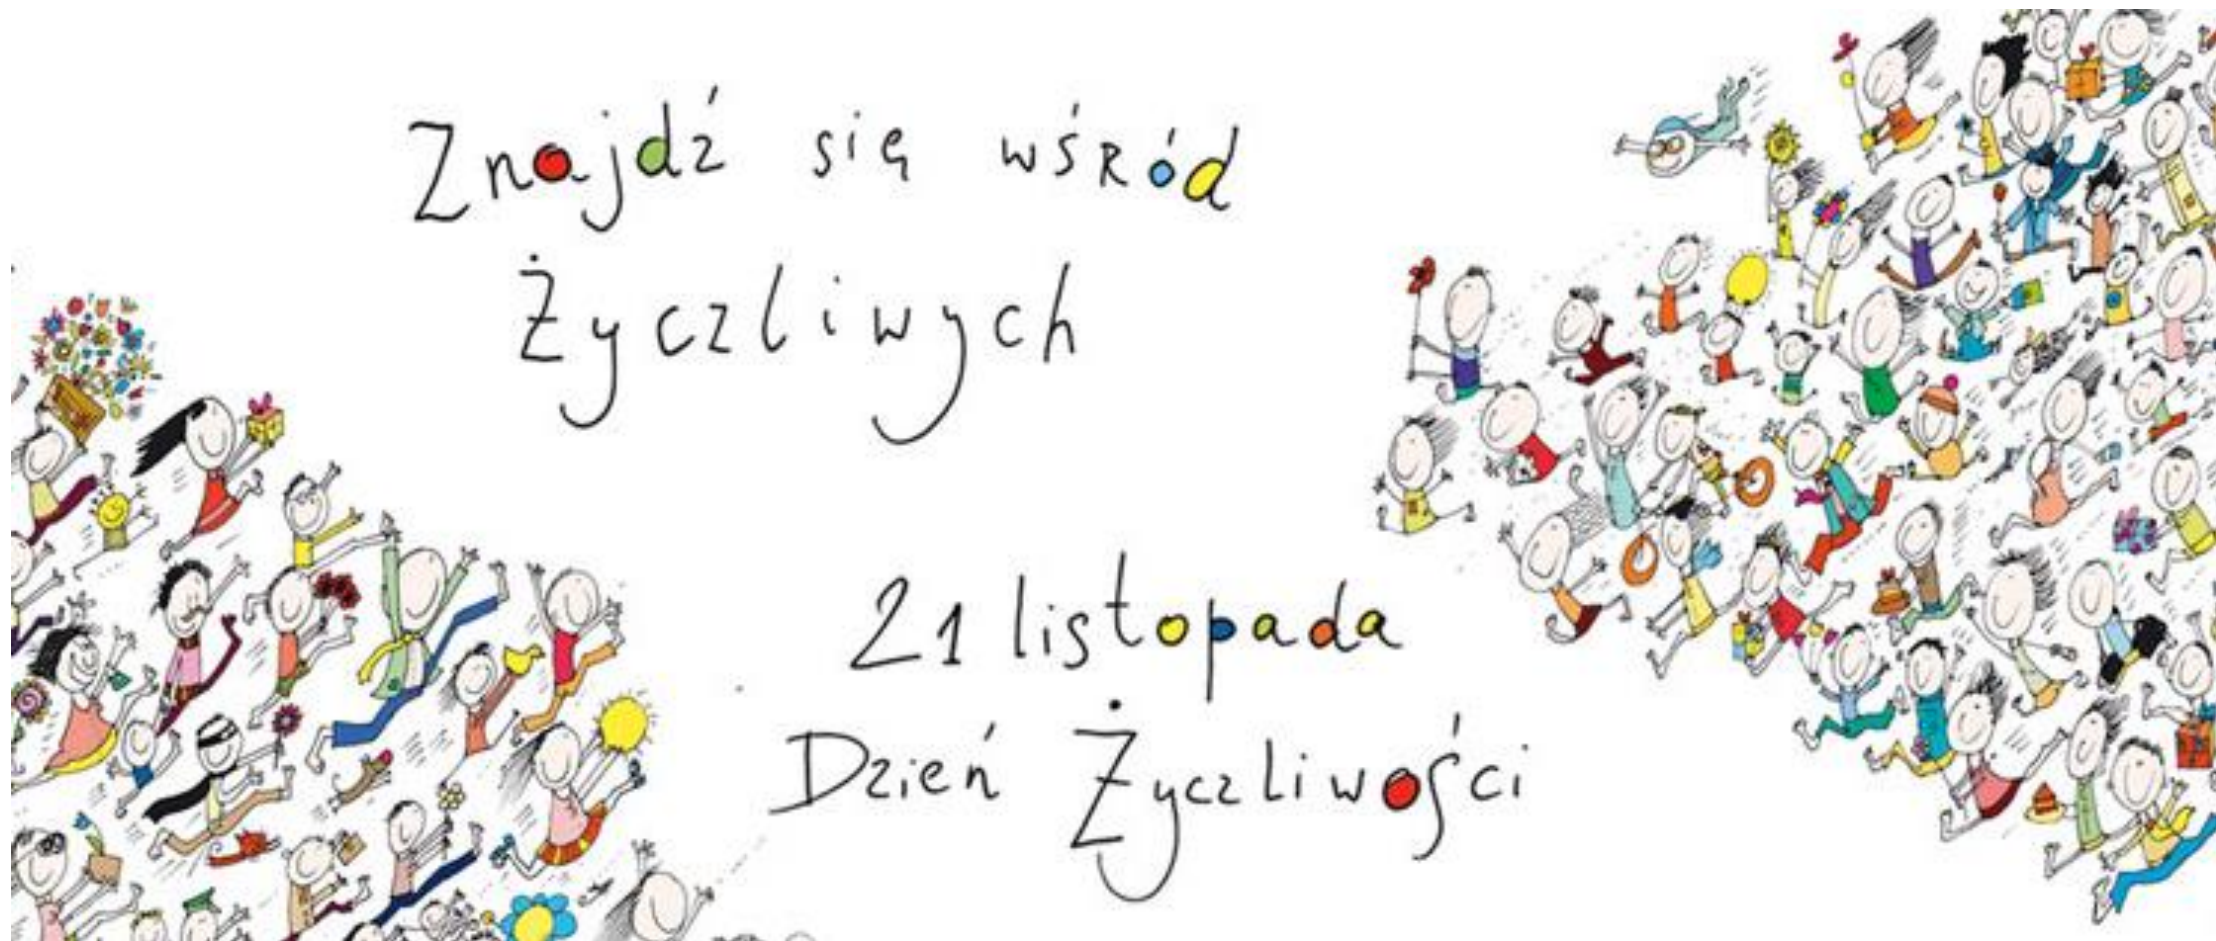 Znajdź się wśród
Życzliwych
21 listopada
Dzień Życzliwości